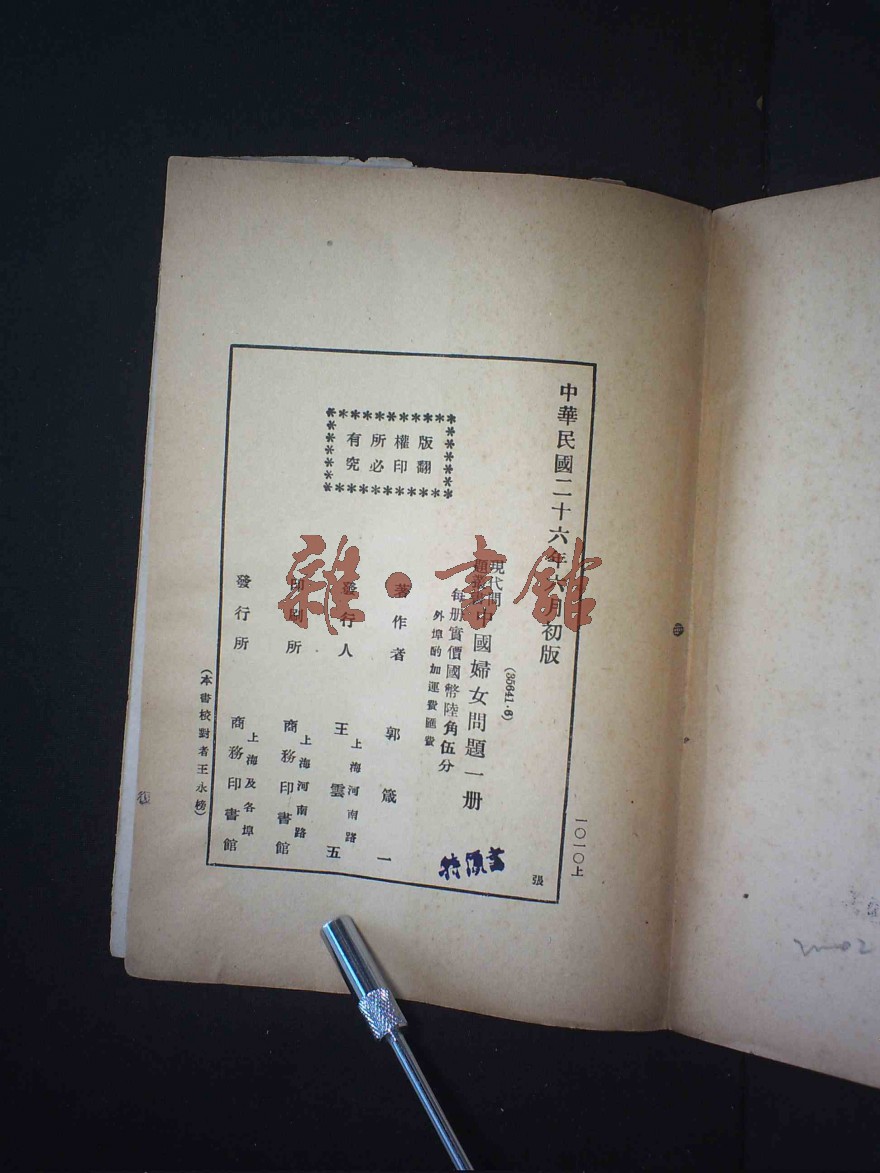 中華民國二十六年六月初版
一〇一〇上
張
(35641·6)
現代問
題叢書
中國婦女問題一册
每册實價國幣陸角伍分
外埠酌加運費匯費
版權所有
翻印必究
著作者 郭箴一
發行人 王雲五
上海河南路
印刷所 商務印書館
上海河南路
發行所 商務印書館
上海及各埠
(本書校對者王永榜)
雜·書館